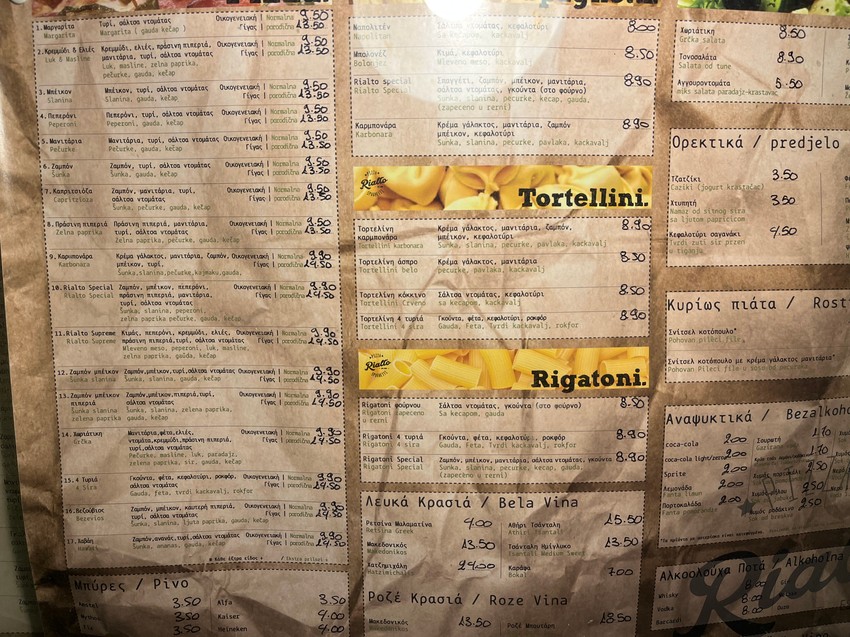 1.Μαργαρίτα Τυρί, σάλτσα ντομάτας Οικογενειακή | Normalna 9.50
Margarita Margarita ( gauda, kečap ) Γίγας | porodična 13.50
2.Κρεμμύδι & Ελιές Κρεμμύδι, ελιές, πράσινη πιπεριά, Οικογενειακή | Normalna 9.50
Luk & Masline μανιτάρια, τυρί, σάλτσα ντομάτας Γίγας | porodična 13.50
Luk, masline, zelna paprika,
pečurke, gauda, kečap
3.Μπέικον Μπέικον, τυρί, σάλτσα ντομάτας Οικογενειακή | Normalna 9.50
Slanina Slanina, gauda, kečap Γίγας | porodična 13.50
4.Πεπερόνι Πεπερόνι, τυρί, σάλτσα ντομάτας Οικογενειακή | Normalna 9.50
Peperoni Peperoni, gauda, kečap Γίγας | porodična 13.50
5.Μανιτάρια Μανιτάρια, τυρί, σάλτσα ντομάτας Οικογενειακή | Normalna 9.50
Pečurke Pečurke, gauda, kečap Γίγας | porodična 13.50
6.Ζαμπόν Ζαμπόν, τυρί, σάλτσα ντομάτας Οικογενειακή | Normalna 9.50
Šunka Šunka, gauda, kečap Γίγας | porodična 13.50
7.Καπριτσιόζα Ζαμπόν, μανιτάρια, τυρί, Οικογενειακή | Normalna 9.50
Capritzioza σάλτσα ντομάτας Γίγας | porodična 13.50
Šunka, pečurke, gauda, kečap
8.Πράσινη πιπεριά Πράσινη πιπεριά, μανιτάρια, τυρί, Οικογενειακή | Normalna 9.50
Zelna paprika σάλτσα ντομάτας Γίγας | porodična 13.50
Zelna paprika, pečurke, gauda, kečap
9.Καρμπονάρα Κρέμα γάλακτος, ζαμπόν, μανιτάρια, Οικογενειακή | Normalna 9.90
Karbonara μπέικον, τυρί Γίγας | porodična 14.50
Šunka,slanina,pečurke,kajmaku,gauda,
10.Rialto Special Ζαμπόν, μπέικον, πεπερόνι, Οικογενειακή | Normalna 9.90
Rialto Special πράσινη πιπεριά, μανιτάρια, Γίγας | porodična 14.50
τυρί, σάλτσα ντομάτας
Šunka, slanina, peperoni,
zelna paprika pečurke, gauda, kečap
11.Rialto Supreme Κιμάς, πεπερόνι, κρεμμύδι, ελιές, Οικογενειακή | Normalna 9.90
Rialto Supreme πράσινη πιπεριά,τυρί,σάλτσα ντομάτας Γίγας | porodična 14.50
Mleveno meso, peperoni, luk, masline,
zelna paprika, gauda, kečap
12.Ζαμπόν μπέικον Ζαμπόν,μπέικον,τυρί,σάλτσα ντομάτας Οικογενειακή | Normalna 9.90
Šunka slanina Šunka, slanina, gauda, kečap Γίγας | porodična 14.50
13.Ζαμπόν μπέικον Ζαμπόν,μπέικον,πιπεριά,τυρί, Οικογενειακή | Normalna 9.90
πιπεριά σάλτσα ντομάτας Γίγας | porodična 14.50
Šunka slanina Šunka, slanina, zelena paprika,
zelena paprika gauda, kečap
14.Χωριάτικη Μανιτάρια,φέτα,ελιές, Οικογενειακή | Normalna 9.90
Grčka ντομάτα,κρεμμύδι,πράσινη πιπεριά, Γίγας | porodična 14.50
τυρί,σάλτσα ντομάτας
Pečurke, masline, luk, paradajz,
zelena paprika, sir, gauda, kečap
15.4 Τυριά Γκούντα, φέτα, κεφαλοτύρι, ροκφόρ Οικογενειακή | Normalna 9.90
4 sira Gauda, feta, tvrdi kackavalj, rokfor Γίγας | porodična 14.50
16.Βεζούβιος Ζαμπόν, μπέικον, καυτερή πιπεριά, Οικογενειακή | Normalna 9.90
Bezevios τυρί, σάλτσα ντομάτας Γίγας | porodična 14.50
Šunka, slanina, ljuta paprika, gauda, kečap
17.Χαβάη Ζαμπόν,ανανάς,τυρί,σάλτσα ντομάτας Οικογενειακή | Normalna 9.90
Šunka, ananas, gauda, kečap Γίγας | porodična 14.50
Μπύρες / Pivo
Amstel 3.50 Alfa 3.50
Mythos 3.50 Kaiser 4.00
3.50 Heineken 4.00
Ναπολιτέν σάλτσα ντομάτας, κεφαλοτύρι 8.00
Μπολονέζ Κιμά, κεφαλοτύρι 8.50
Mleveno meso, kackavalj
Rialto special Σπαγγέτι, ζαμπόν, μπέικον, μανιτάρια, 8.90
Rialto Special σάλτσα ντομάτας, γκούντα (στο φούρνο)
šunka, slanina, pečurke, kecap, gauda,
(zapečeno u rerni)
Καρμπονάρα Κρέμα γάλακτος, μανιτάρια, ζαμπόν 8.90
Karbonara μπέικον, κεφαλοτύρι
Šunka, slanina, pecurke, pavlaka, kackavalj
Rialto
Tortellini.
Τορτελίνη Κρέμα γάλακτος, μανιτάρια, ζαμπόν, 8.90
καρμπονάρα μπέικον, κεφαλοτύρι
Tortellini karbonara Šunka, slanina, pecurke, pavlaka, kackavalj
Τορτελίνη άσπρο Κρέμα γάλακτος, μανιτάρια 8.30
Tortellini belo pecurke, pavlaka, kackavalj
Τορτελίνη κόκκινο Σάλτσα ντομάτας, κεφαλοτύρι 8.50
Tortellini crveno sa kecapom, kackavalj
Τορτελίνη 4 τυριά Γκούντα, φέτα, κεφαλοτύρι, ροκφόρ 8.90
Tortellini 4 sira Gauda, Feta, Tvrdi kackavalj, rokfor
Rialto
Rigatoni.
Rigatoni φούρνου Σάλτσα ντομάτας, γκούντα (στο φούρνο) 8.50
Rigatoni zapeceno Sa kecapom, gauda
u rerni
Rigatoni 4 τυριά Γκούντα, φέτα, κεφαλοτύρι, ροκφόρ 8.90
Rigatoni 4 sira Gauda, Feta, Tvrdi kackavalj, rokfor
Rigatoni Special Ζαμπόν, μπέικον, μανιτάρια, σάλτσα ντομάτας, γκούντα 8.90
Rigatoni Special Šunka, slanina, pečurke, kecap, gauda,
(zapeceno u rerni)
Λευκά Κρασιά / Bela Vina
Ρετσίνα Μαλαματίνα 4.00 Αθήρι Τσάνταλη 15.50
Retsina Greek
Μακεδονικός 13.50 Τσάνταλη Ημίγλυκο 13.50
Makedonikos
Χατζημιχάλη 24.00 Καράφα 7.00
Hatzimichalis Bokal
Ροζέ Κρασιά / Roze Vina
Μακεδονικός 13.50 Ροζέ Μπουτάρη 18.50
Χωριάτικη 8.50
Grčka salata
Τονοσαλάτα 8.90
Salata od tune
Αγγουροντομάτα 5.50
miks salata paradajz-krastavac
Ορεκτικά / predjelo
Τζατζίκι 3.50
Caziki (jogurt krastavac)
Χτυπητή 3.50
Namaz od sitnog sira
sa ljutom papricicom
Κεφαλοτύρι σαγανάκι 4.50
Tvrdi zuti sir przen
u tiganju
Κυρίως πιάτα / Rost
Σνίτσελ κοτόπουλο*
Pohovan Pileci file
Σνίτσελ κοτόπουλο με κρέμα γάλακτος μανιτάρια*
Αναψυκτικά / Bezalkoho
coca-cola 2.00 Σουρωτή 1.70
coca-cola light/zero 2.00 1.70
Sprite 2.00 2.50
Λεμονάδα 2.00 2.50
Fanta limun
Πορτοκαλάδα 2.00 2.50
Αλκοολούχα Ποτά / Alkoholna
Whisky 8.00
Vodka 8.00
Bacardi 8.00